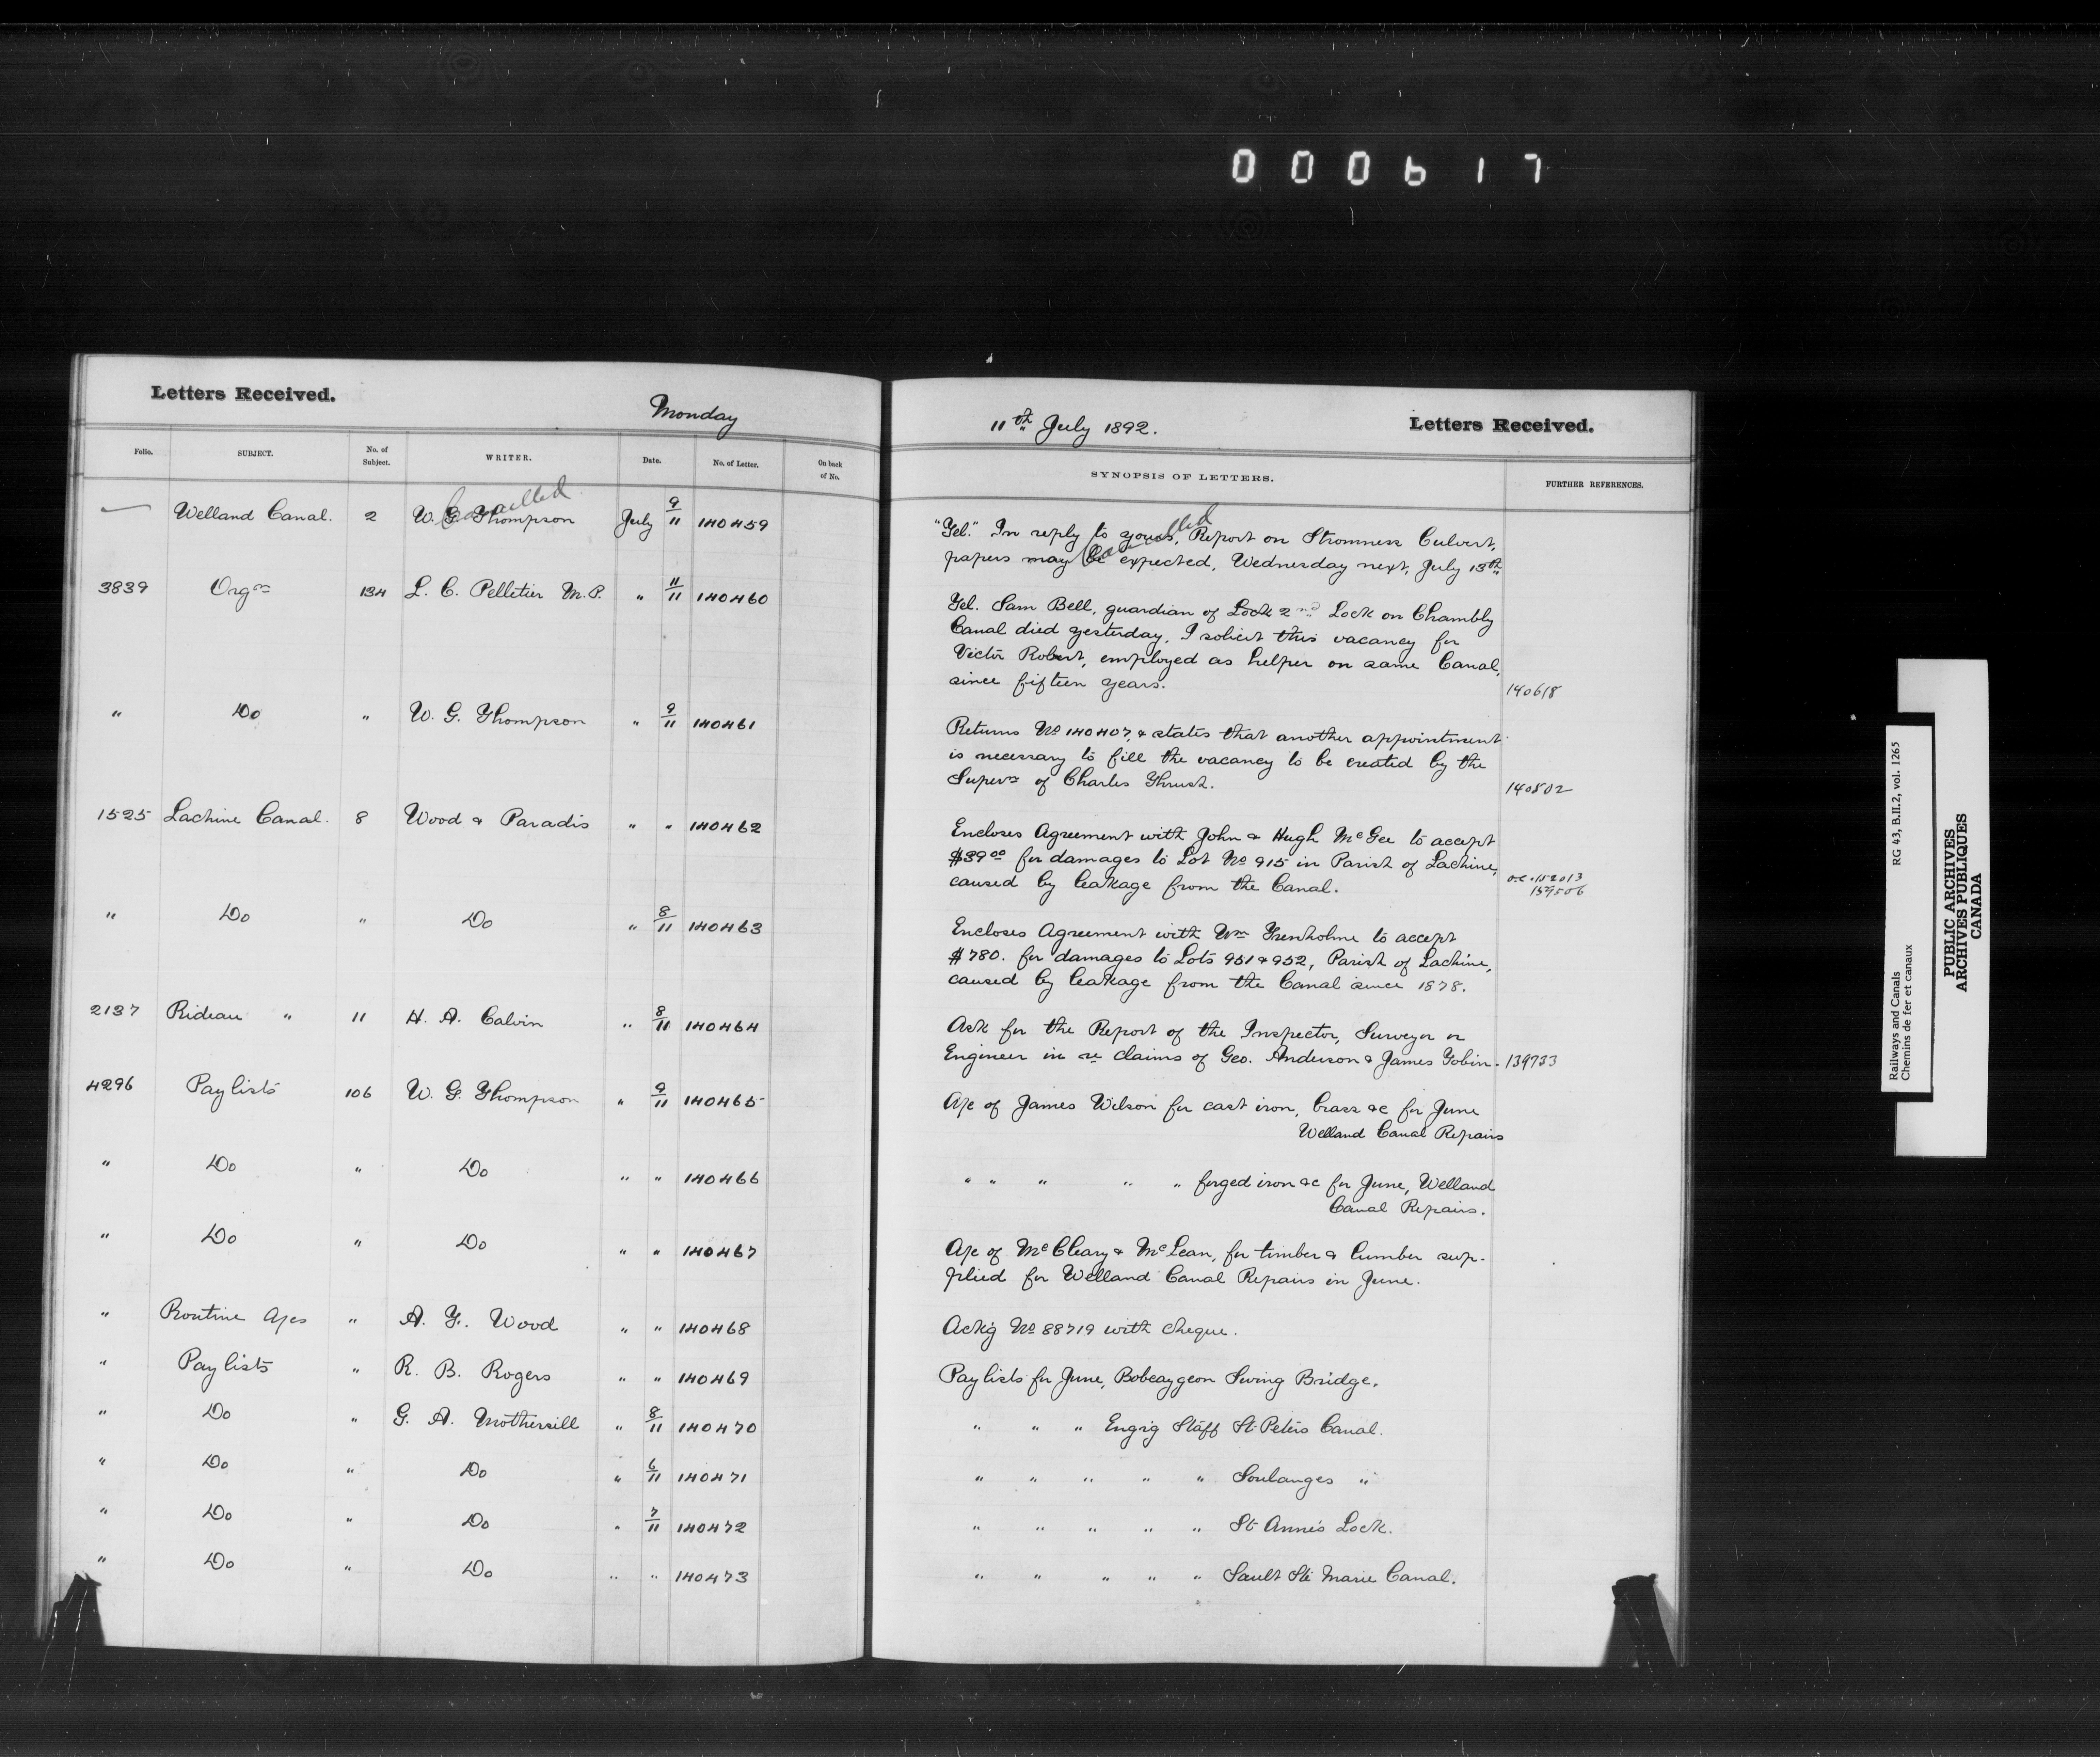 0 0 0 6 1 7
Letters Received.
Monday
Folio. SUBJECT. No. of Subject. WRITER. Date. No. of Letter. On back of No.
— Welland Canal. 2 W. G. Thompson July 9/11 140459
Cancelled
3839 Orgn 134 L. C. Pelletier M.P. " 11/11 140460
" Do " W. G. Thompson " 9/11 140461
1525 Lachine Canal. 8 Wood & Paradis " " 140462
" Do " Do " 8/11 140463
2137 Rideau " 11 H. A. Calvin " 8/11 140464
4296 Paylists 106 W. G. Thompson " 9/11 140465
" Do " Do " " 140466
" Do " Do " " 140467
" Routine A/cs " A. F. Wood " " 140468
" Paylists " R. B. Rogers " " 140469
" Do " G. A. Mothersill " 8/11 140470
" Do " Do " 6/11 140471
" Do " Do " 7/11 140472
" Do " Do " " 140473
11th July 1892.
Letters Received.
SYNOPSIS OF LETTERS. FURTHER REFERENCES.
Cancelled
"Tel." In reply to yours, Report on Stromness Culvert,
papers may be expected, Wednesday next, July 13th
Tel. Sam Bell, guardian of Lock 2nd Lock on Chambly
Canal died yesterday, I solicit this vacancy for
Victor Robert, employed as helper on same Canal,
since fifteen years. 140618
Returns No 140407, & states that another appointment
is necessary to fill the vacancy to be created by the
Supern of Charles Thrush. 140502
Encloses Agreement with John & Hugh McGee to accept
$39 00 for damages to Lot No 915 in Parish of Lachine,
caused by leakage from the Canal. O.C. 152013
159506
Encloses Agreement with Wm Trenholme to accept
$780. for damages to Lots 951 & 952, Parish of Lachine,
caused by leakage from the Canal since 1878.
Ask for the Report of the Inspector, Surveyor or
Engineer in re claims of Geo. Anderson & James Tobin. 139733
A/c of James Wilson for cast iron, brass &c for June
Welland Canal Repairs
" " " " " forged iron &c for June, Welland
Canal Repairs.
A/c of McCleary & McLean, for timber & lumber sup-
plied for Welland Canal Repairs in June.
Ackg No 88719 with cheque.
Paylists for June, Bobcaygeon Swing Bridge.
" " " Engrg Staff St. Peters Canal.
" " " " " Soulanges "
" " " " " St Anne's Lock.
" " " " " Sault Ste Marie Canal.
Railways and Canals RG 43, B.II.2, vol. 1265
Chemins de fer et canaux
PUBLIC ARCHIVES
ARCHIVES PUBLIQUES
CANADA